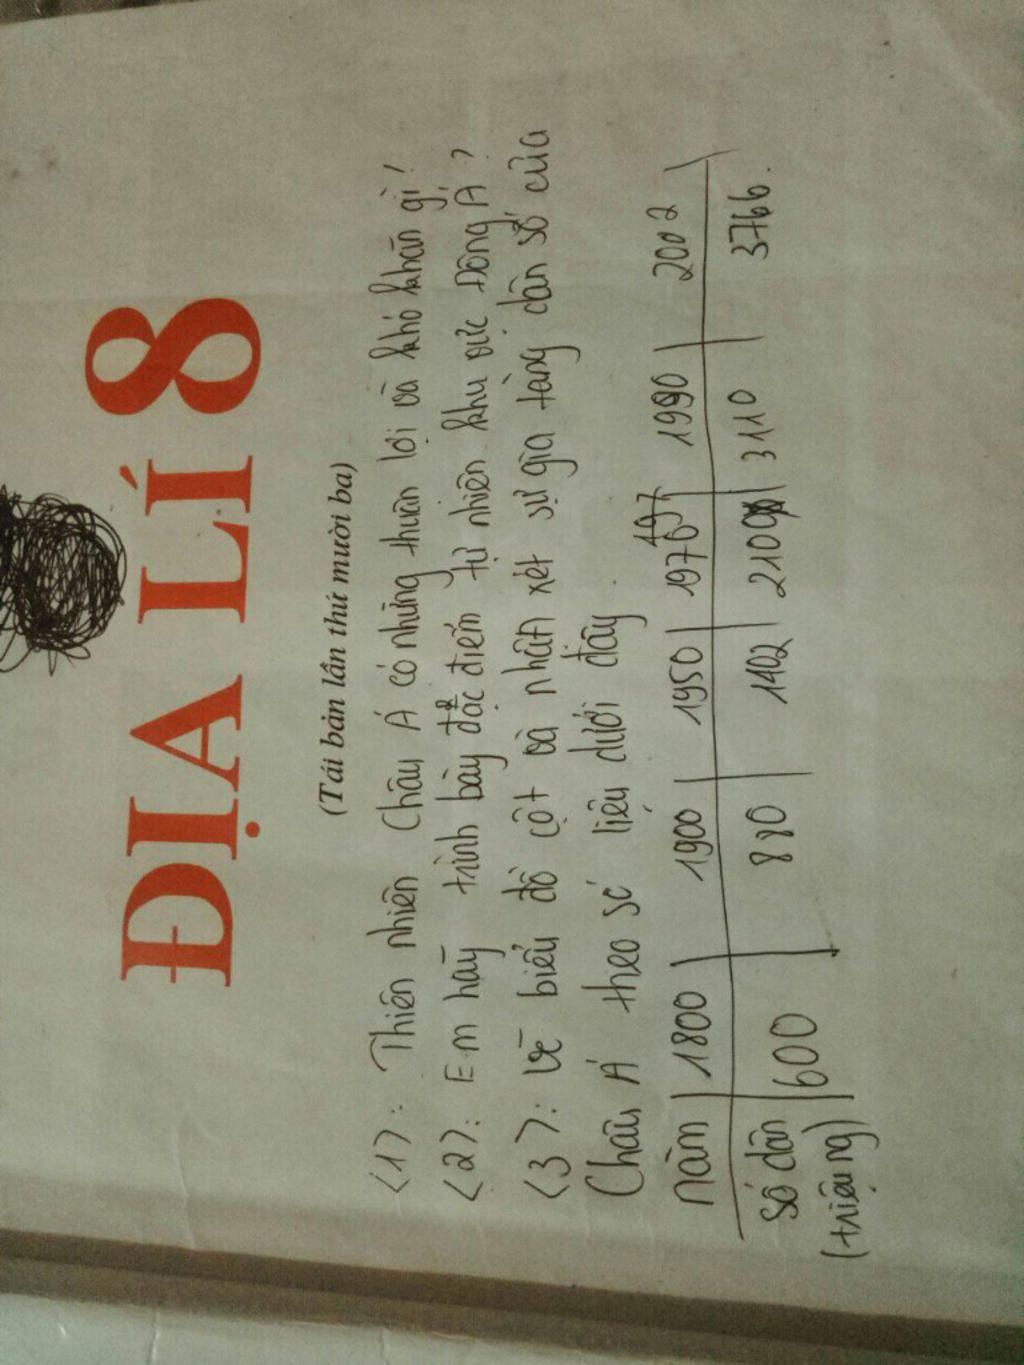 ĐỊA LÍ 8
(Tái bản lần thứ mười ba)
<1>: Thiên nhiên Châu Á có những thuận lợi và khó khăn gì!
<2>: Em hãy trình bày đặc điểm tự nhiên khu vực Đông Á?
<3>: Vẽ biểu đồ cột và nhận xét sự gia tăng dân số của
Châu Á theo số liệu dưới đây
Năm 1800 1900 1950 1990 2002
Số dân 600 880 1402 3110 3766.
(triệu ng)